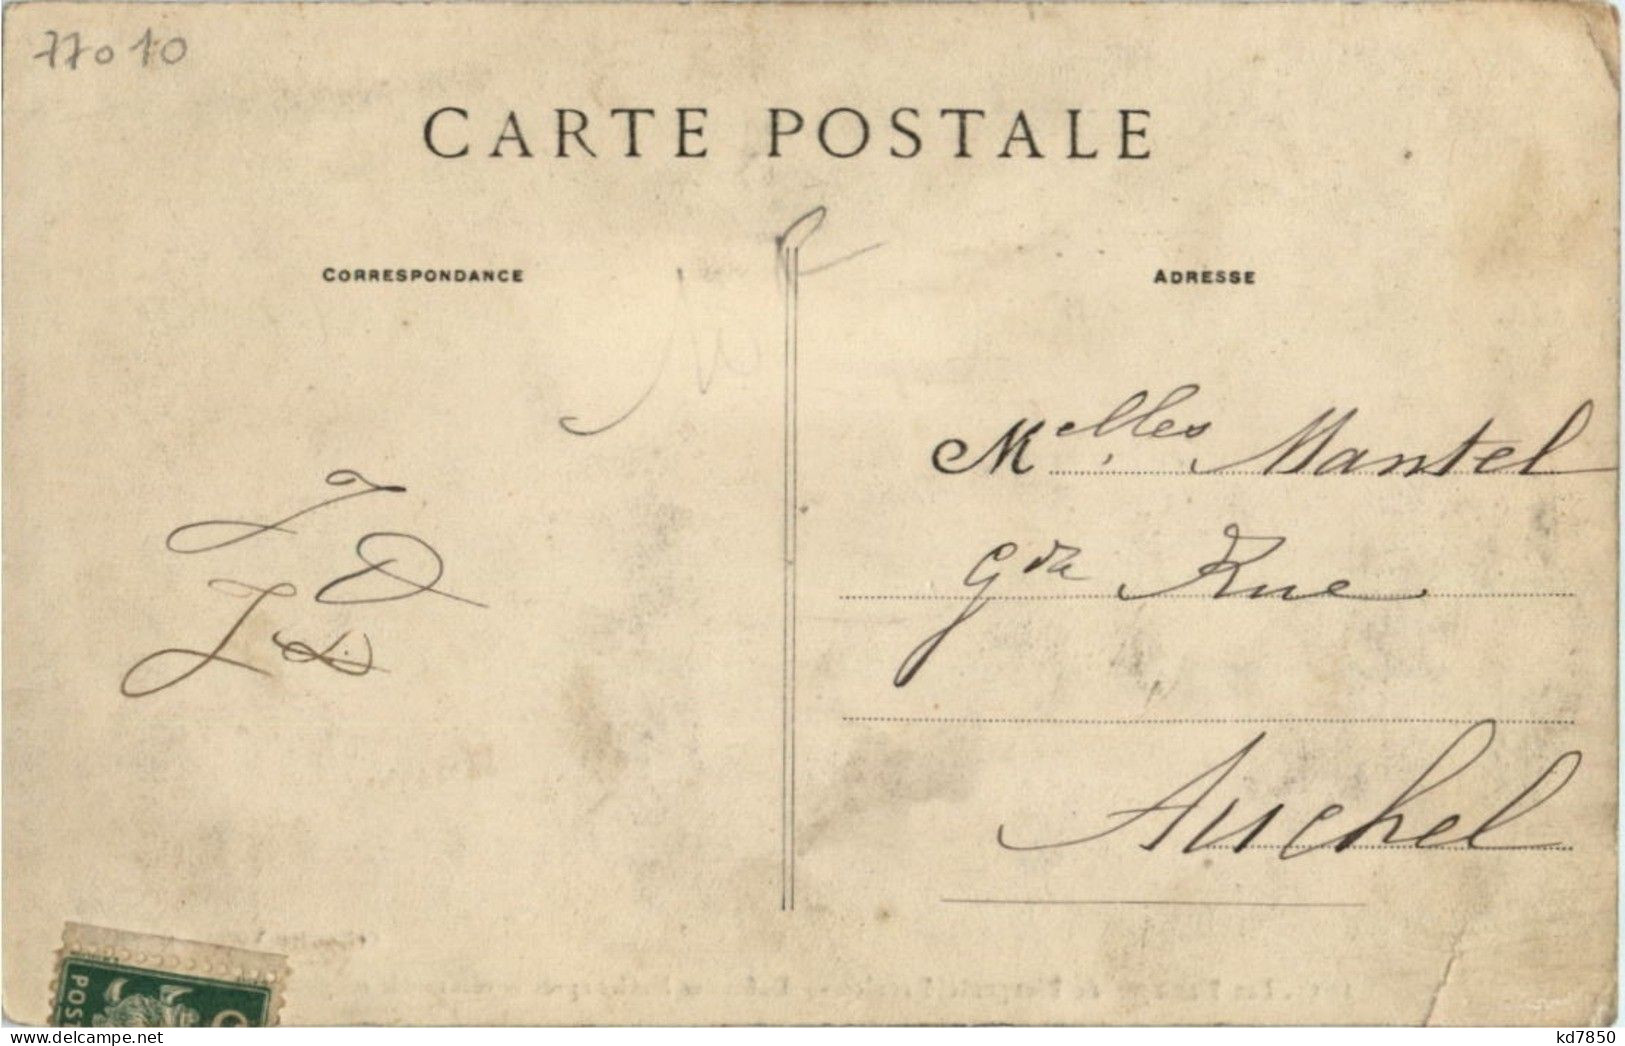 77010
CARTE POSTALE
CORRESPONDANCE
ADRESSE
Melles Mantel
Gde Rue
Auchel
POS
delcampe.net
kd7850